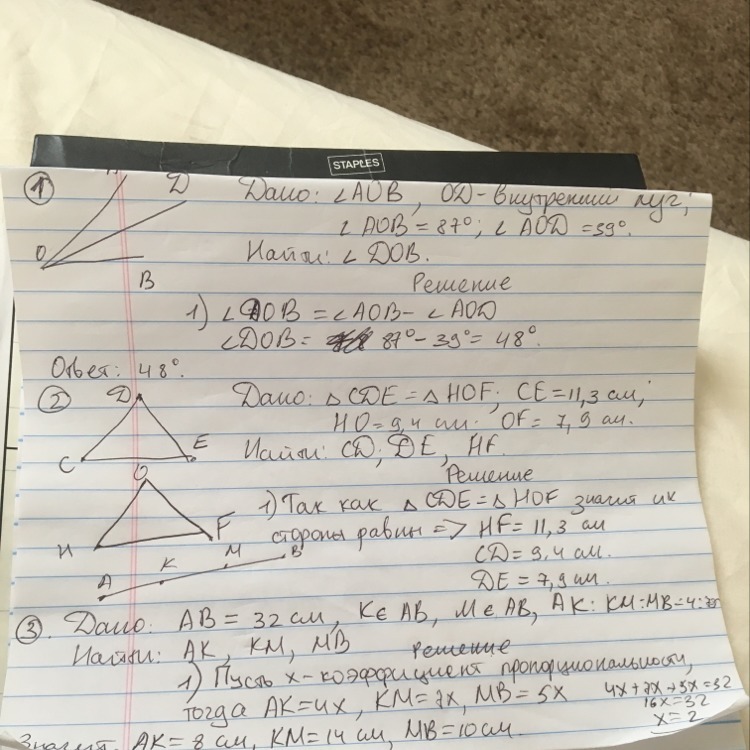 STAPLES
1
D
O
B
Дано: ∠AOB, OD - внутренний луч;
∠AOB = 87°; ∠AOD = 39°.
Найти: ∠DOB.
Решение
1) ∠DOB = ∠AOB - ∠AOD
∠DOB = 87° - 39° = 48°.
Ответ: 48°.
2
D
C
E
Дано: △CDE = △HOF; CE = 11,3 см;
HO = 9,4 см. OF = 7,9 см.
Найти: CD; DE, HF.
Решение
O
H
F
1) Так как △CDE = △HOF значит их
стороны равны => HF = 11,3 см
CD = 9,4 см.
DE = 7,9 см.
A
K
M
B
3 Дано: AB = 32 см, K∈AB, M∈AB, AK:KM:MB=4:7:5
Найти: AK, KM, MB
Решение
1) Пусть x - коэффициент пропорциональности,
тогда AK=4x, KM=7x, MB=5x
4x+7x+5x=32
16x=32
x=2
Значит AK = 8 см, KM = 14 см, MB = 10 см.